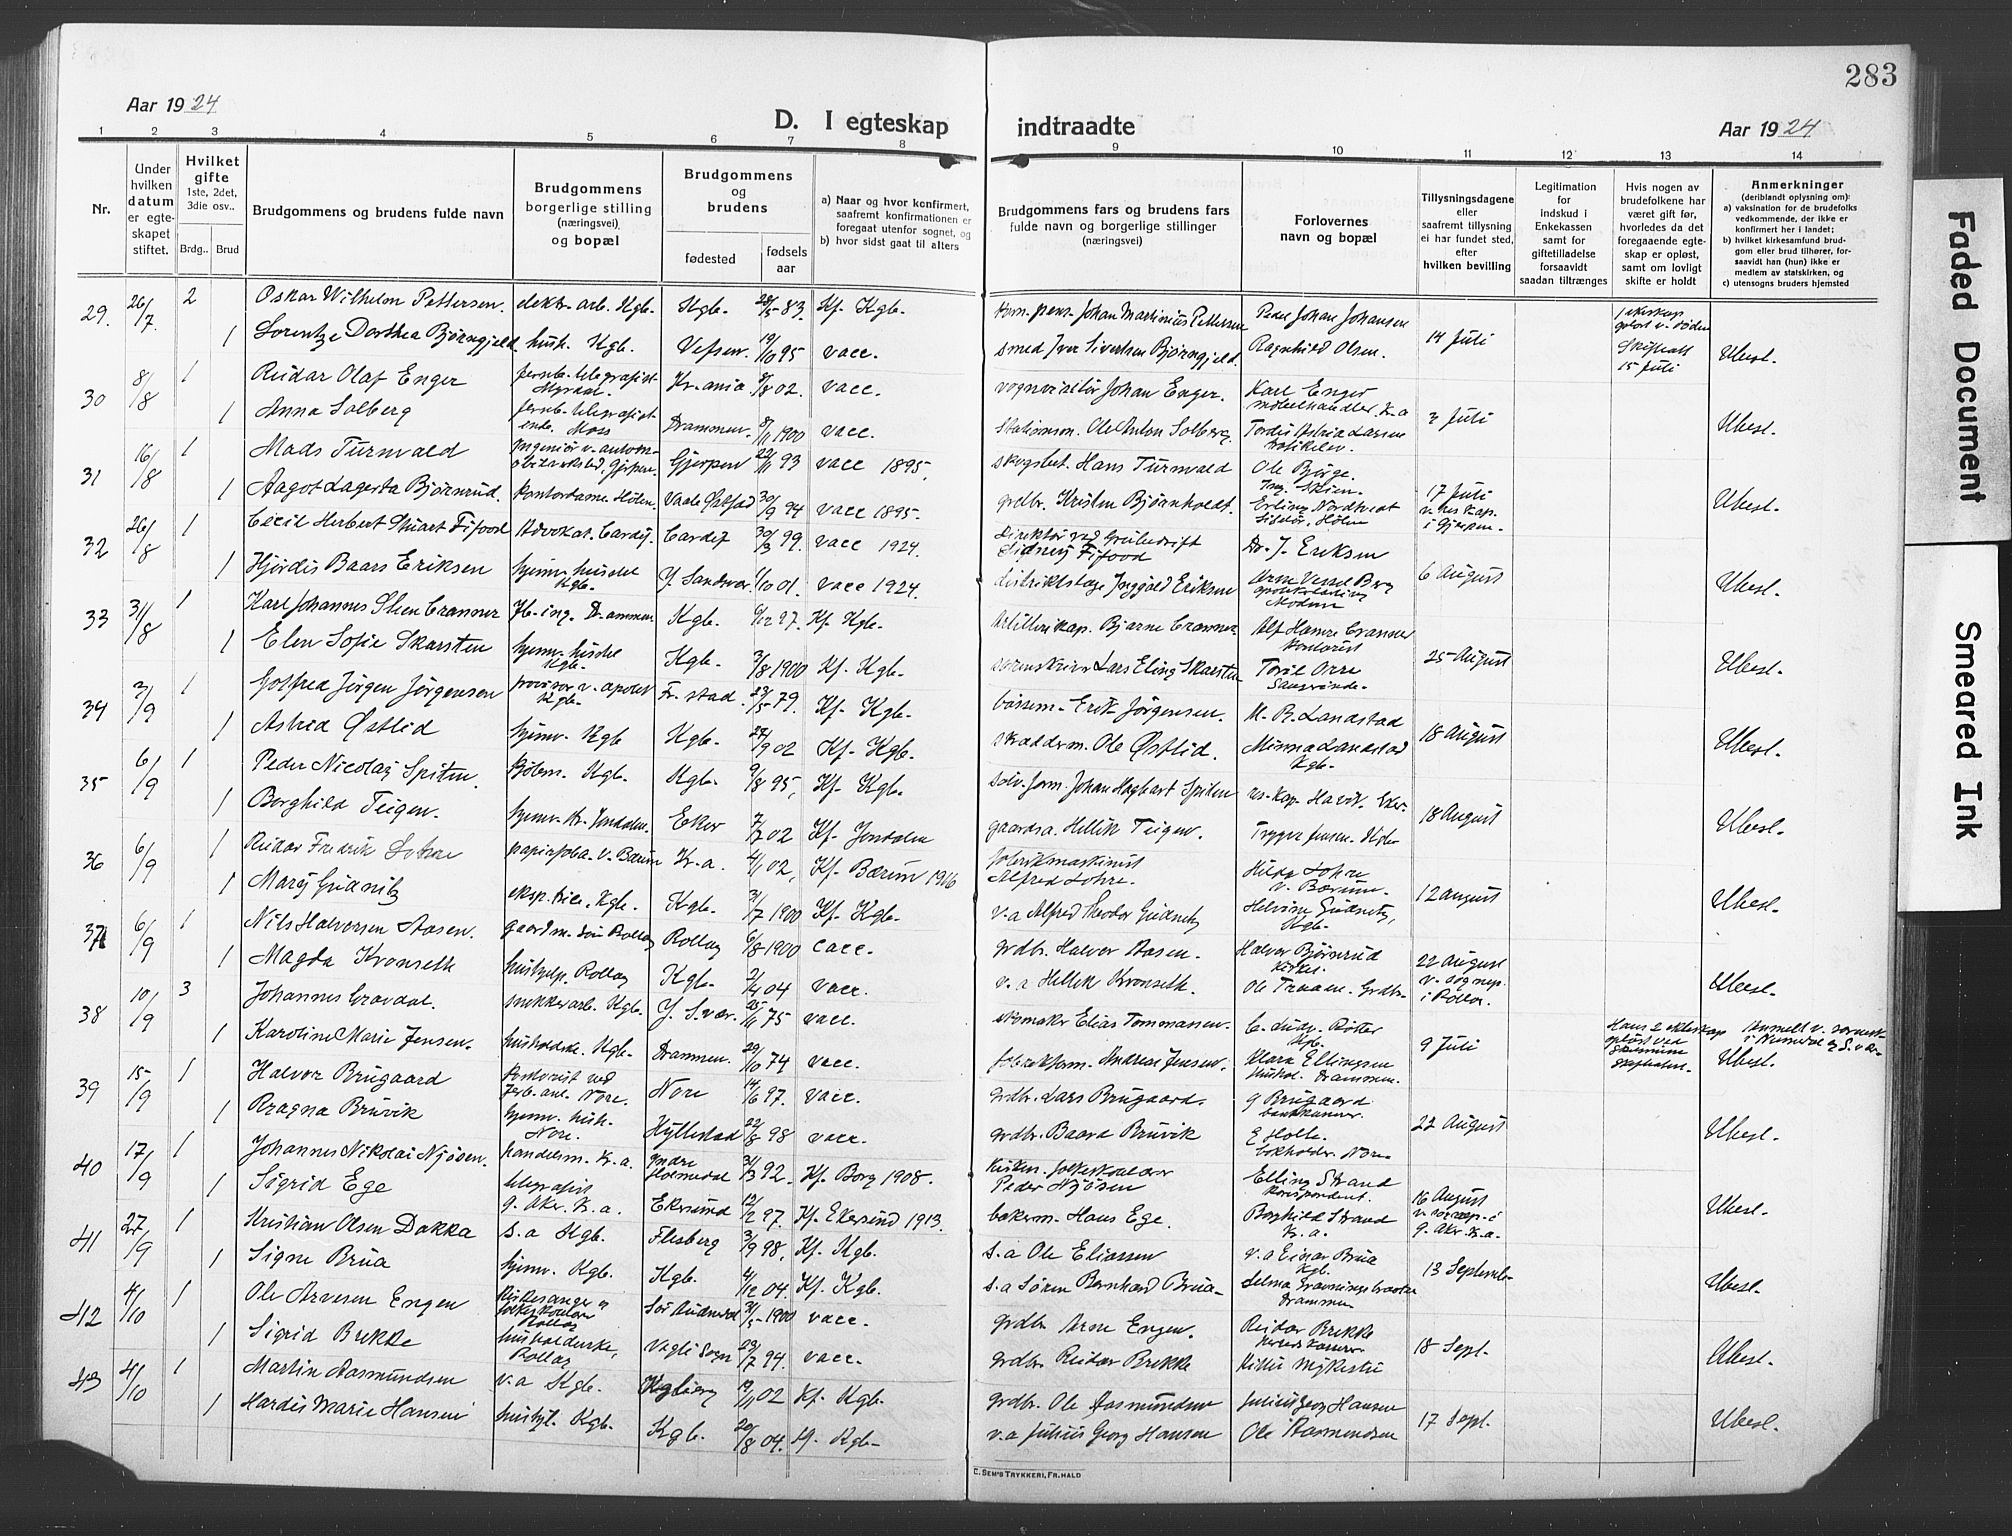 283
Aar 1924
D. I egteskap indtraadte
Aar 1924
1 2 3 4 5 6 7 8 9 10 11 12 13 14
Nr.
Under hvilken datum er egteskapet stiftet.
Hvilket gifte 1ste, 2det, 3die osv..
Brdg.. Brud
Brudgommens og brudens fulde navn
Brudgommens borgerlige stilling (næringsvei) og bopæl
Brudgommens og brudens
fødested
fødsels aar
a) Naar og hvor konfirmert, saafremt konfirmationen er foregaat utenfor sognet, og
b) hvor sidst gaat til alters
Brudgommens fars og brudens fars fulde navn og borgerlige stillinger (næringsvei)
Forlovernes navn og bopæl
Tillysningsdagene eller saafremt tillysning ei har fundet sted, efter hvilken bevilling
Legitimation for indskud i Enkekassen samt for giftetilladelse forsaavidt saadan tiltrænges
Hvis nogen av brudefolkene har været gift før, hvorledes da det foregaaende egteskap er opløst, samt om lovligt skifte er holdt
Anmerkninger (deriblandt oplysning om):
a) vaksination for de brudefolks vedkommende, der ikke er konfirmert her i landet;
b) hvilket kirkesamfund brudgom eller brud tilhører, forsaavidt han (hun) ikke er medlem av statskirken, og
c) utensogns bruders hjemsted
29. 26/7 2 Oskar Wilhelm Pettersen elektr. arb. Kgb. Kgb. 28/5 83. Kf. Kgb. Johan Martinius Pettersen Peder Johan Johansen
1 Lorentze Dorthea Bjørngjeld hush. Kgb. Vefsen 19/10 95 vacc. smed Iver Sivertsen Bjørngjeld. Ragnhild Olsen. 14 Juli Skifteatt 15 Juli Ubesl.
30 8/8 1 Reidar Olaf Enger jernb. telegrafist Myrdal Kr.ania 8/8 02. vacc. vognvisitør Johan Enger. Karl Enger møbelhandler K.a
1 Anna Solberg jernb. telegrafistinde. Moss Drammen. 8/11 1900 vacc. stationsm. Ole Anton Solberg. Tordis Astrid Larsen 2 Juli Ubesl.
31 16/8 1 Mads Turmvald Ingeniør v. automobilverksted, Gjerpen Gjerpen 22/11 93 vacc 1895, skogsbet. Hans Turmvald Ole Børge. Ing. Skien.
1 Aagot Lagerta Bjørnrud. kontordame Hølen. Vaale Østfold 30/9 94 vacc 1895. grdbr. Kristen Bjørnholdt. Erling Nordtvedt Hølen 17 Juli v. res kap. i Gjerpen. Ubesl.
32 26/8 1 Cecil Herbert Stuart Fifoood Advokat. Cardif. Cardif 30/3 99. vacc 1924. Direktør ved Grubedrift Sidney Fifoood Dr. J. Eriksen
1 Hjørdis Baars Eriksen hjemv. huset Kgb. Y. Sandvær. 1/10 01. vacc 1924. distriktslæge Ingvald Eriksen Arne Vessel Berg Modum 6 August Ubesl.
33 31/8 1 Karl Johannes Steen Cranner Jb. ing. Drammen Kgb. 6/12 97. Kf. Kgb. Artillerikap. Bjarne Cranner. Alf Hamre Cranner kontorist
1 Elen Sofie Skarsten hjemv. huset Kgb. Kgb. 3/8 1900 Kf. Kgb. sorenskriver Lars Eling Skarsten Toril Orre 25 August Ubesl.
34 3/9 1 Gotfred Jörgen Jörgensen provisor v. apotek Kgb. Fr. stad. 23/5 79. Kf. Kgb. børsem. Erik Jörgensen. M. B. Landstad
1 Astrid Østlid hjemv. Kgb Kgb. 27/9 02 Kf. Kgb. skredderm. Ole Østlid. Minna Landstad Kgb. 18 August Ubesl.
35 6/9 1 Peder Nicolay Spiten. Kgb. Kgb. 9/8 95, Kf. Kgb. sølv. form. Johan Hagbart Spiten res. Kap. Eker.
1 Borghild Teigen. hjemv. Kr. Jondalen. Eker 7/7 02 Kf. Jondalen gaardsa. Hellik Teigen. Trygve Jensen. 18 August Ubesl.
36 6/9 1 Reidar Fredrik Lohre papirfabr. v. Bærum Kr.a. 4/1 02, Kf. Bærum 1916 fabrikmaskinist Alfred Lohre. Hilda Lohre v. Bærum.
1 Mary Gudnitz eksp. Kgb. Kgb. 31/7 1900 Kf. Kgb. v.a Alfred Theodor Gudnitz Helvine Gudnitz, Kgb. 12 august Ubesl.
37 6/9 1 Nils Halvorsen Aasen. gaardm. søn Rollag Rollag 6/8 1900 vacc. grdbr. Halvor Aasen. Halvor Bjørnrud
1 Magda Kronseth hushjelp. Rollag Kgb. 2/4 04 vacc. v. a Hellik Kronseth. Ole Traaen. Grdbr. 22 August v. sognep. i Rollag. Ubesl.
38 10/9 3 Johannes Gravdal. snekkerarb. Kgb. Y. Svær. 25/11 75 vacc. skomaker Elias Tommassen. C. Ludv. Kgb.
1 Karoline Marie Jensen. husholdske. Kgb. Drammen. 29/10 74 vacc. fabrikform. Andreas Jensen. Klara Ellingsen Drammen. 9 Juli Hans 2 ekteskap opløst ved Ubesl.
39 15/9 1 Halvor Brugaard kontorist ved Jerb. anl. Nore. Nore 14/6 97. vacc. grdbr. Lars Brugaard. G Brugaard
1 Ragna Bruvik hjemv. hush. Nore. Hyllestad 22/8 98 vacc. grdbr. Baard Bruvik E Holte. bokholder. Nore 22 August Ubesl.
40 17/9 1 Johannes Nikolai Njøsen. handelsm. K.a. Indre Holmedal 31/3 92. Kf. Borg 1908. Peder Njøsen Elling Strand Korespondent.
1 Sigrid Ege telegrafist g. Aker. K.a. Ekersund 12/2 97. Kf. Ekersund 1913. bakerm. Hans Ege. Borghild Strand K.a. 16 August g. Aker K.a. Ubesl.
41 27/9 1 Kristian Olsen Dokka s.a Kgb. Flesberg 3/9 98. Kf. Kgb. s.a Ole Eliassen v.a Einar Brua Kgb.
1 Signe Brua hjemv. Kgb. Kgb. 4/12 04. Kf. Kgb. s.a Søren Bernhard Brua Selma Drammen 13 September Ubesl.
42 4/10 1 Ole Arvesen Engen Kirkesanger & Rollag Sør Audnedal 31/5 1900 vacc. grdbr. Arne Engen. Reidar Brekke
1 Sigrid Brekke husholderske, Rollag Vegli Sogn 23/7 94. vacc. grdbr. Reidar Brekke Kittil Mykestu 18 Sept. Ubesl.
43 4/10 1 Martin Aasmundsen v.a Kgb. Kgberg 19/11 02 Kf. Kgb. grdbr. Ole Aasmundsen Julius Georg Hansen
1 Hardis Marie Hansen hushj. Kgb. Kgb. 20/8 04. Kf. Kgb. v.a Julius Georg Hansen Ole Aasmundsen 17 Sept. Ubesl.
C. SEM'S TRYKKERI, FR.HALD
Faded Document
Smeared Ink